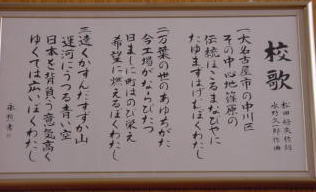 校歌
松田好夫作詞
水野久一郎作曲
一大名古屋市の中川区
その中心地篠原の
伝統はこるまなびやに
たゆまずはげむぼくわたし
二万葉の世のあゆちがた
今工場がならびたつ
日ましに町はのび栄え
希望に燃えるぼくわたし
三遠くかすんだすずか山
運河にうつる青い空
日本を背負う意気高く
ゆくては広いぼくわたし